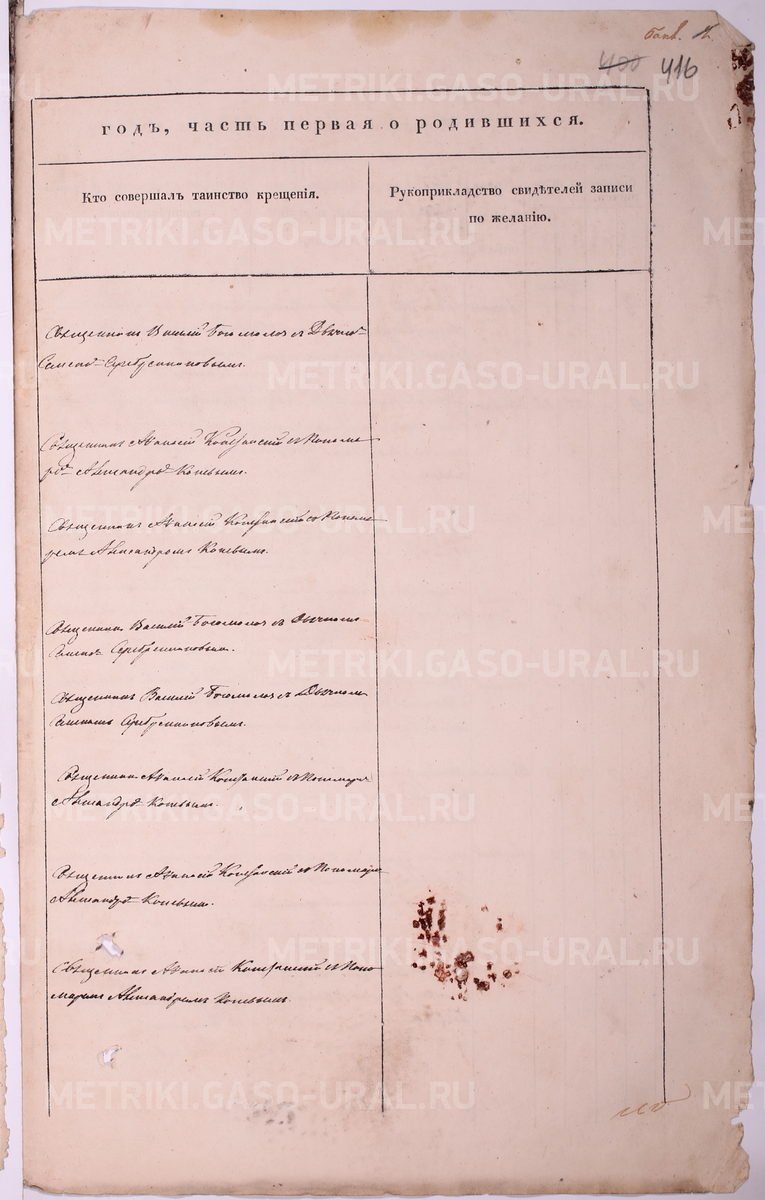 416
годъ, часть первая о родившихся.
Кто совершалъ таинство крещенія.
Рукоприкладство свидѣтелей записи
по желанію.
Священникъ Василій Богомолов съ Дьячко
Семено Серебренниковымъ.
Священникъ Аѳанасій съ Понома
ремъ Александро Коневымъ.
Священникъ Аѳанасій съ Поном
ремъ Александромъ Коневымъ.
Священникъ Василій Богомолов съ Дьячкомъ
Семено Серебренниковым.
Священникъ Василій Богомолов съ Дьячком
Семеномъ Серебренниковымъ.
Священникъ Аѳанасій съ Пономаре
Александро Коневымъ.
Священникъ Аѳанасій съ Пономаре
Александро Коневым.
Священникъ Аѳанасій съ Поно
маремъ Александромъ Коневымъ.
METRIKI.GASO-URAL.RU